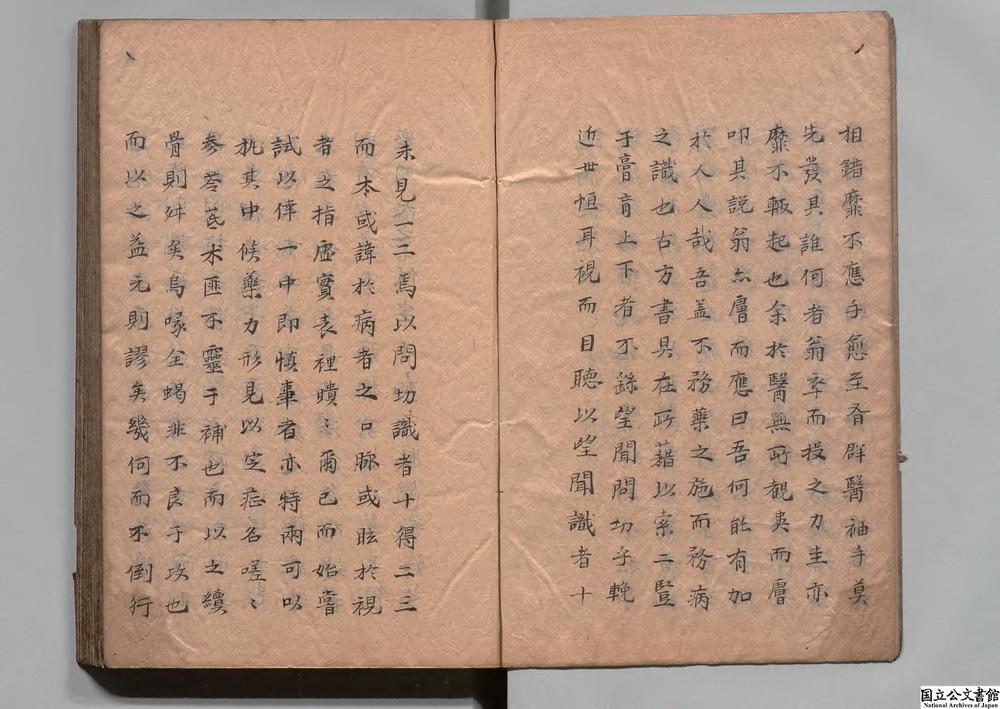 相錯靡不應手愈至吝群醫袖手莫
先發具誰何者翁卒而投之刀圭亦
靡不輙起也余於醫無所覩奥而層
叩其說翁亦層而應曰吾何能有加
於人人哉吾盖不務藥之施而務病
之識也古方書具在所藉以索二豎
于膏肓上下者不繇望聞問切乎輓
近世恒耳視而目聽以望聞識者十
未見一二焉以問切識者十得二三
而本或諱於病者之口脉或眩於視
者之指虛實表裡瞶〻爾已而始嘗
試以倖一中即慎事者亦特兩可以
執其中候藥力形見以定症名嗟〻
參苓芪术匪不靈于補也而以之續
骨則舛矣烏喙全蝎非不良于攻也
而以之益元則謬矣幾何而不倒行
国立公文書館
National Archives of Japan